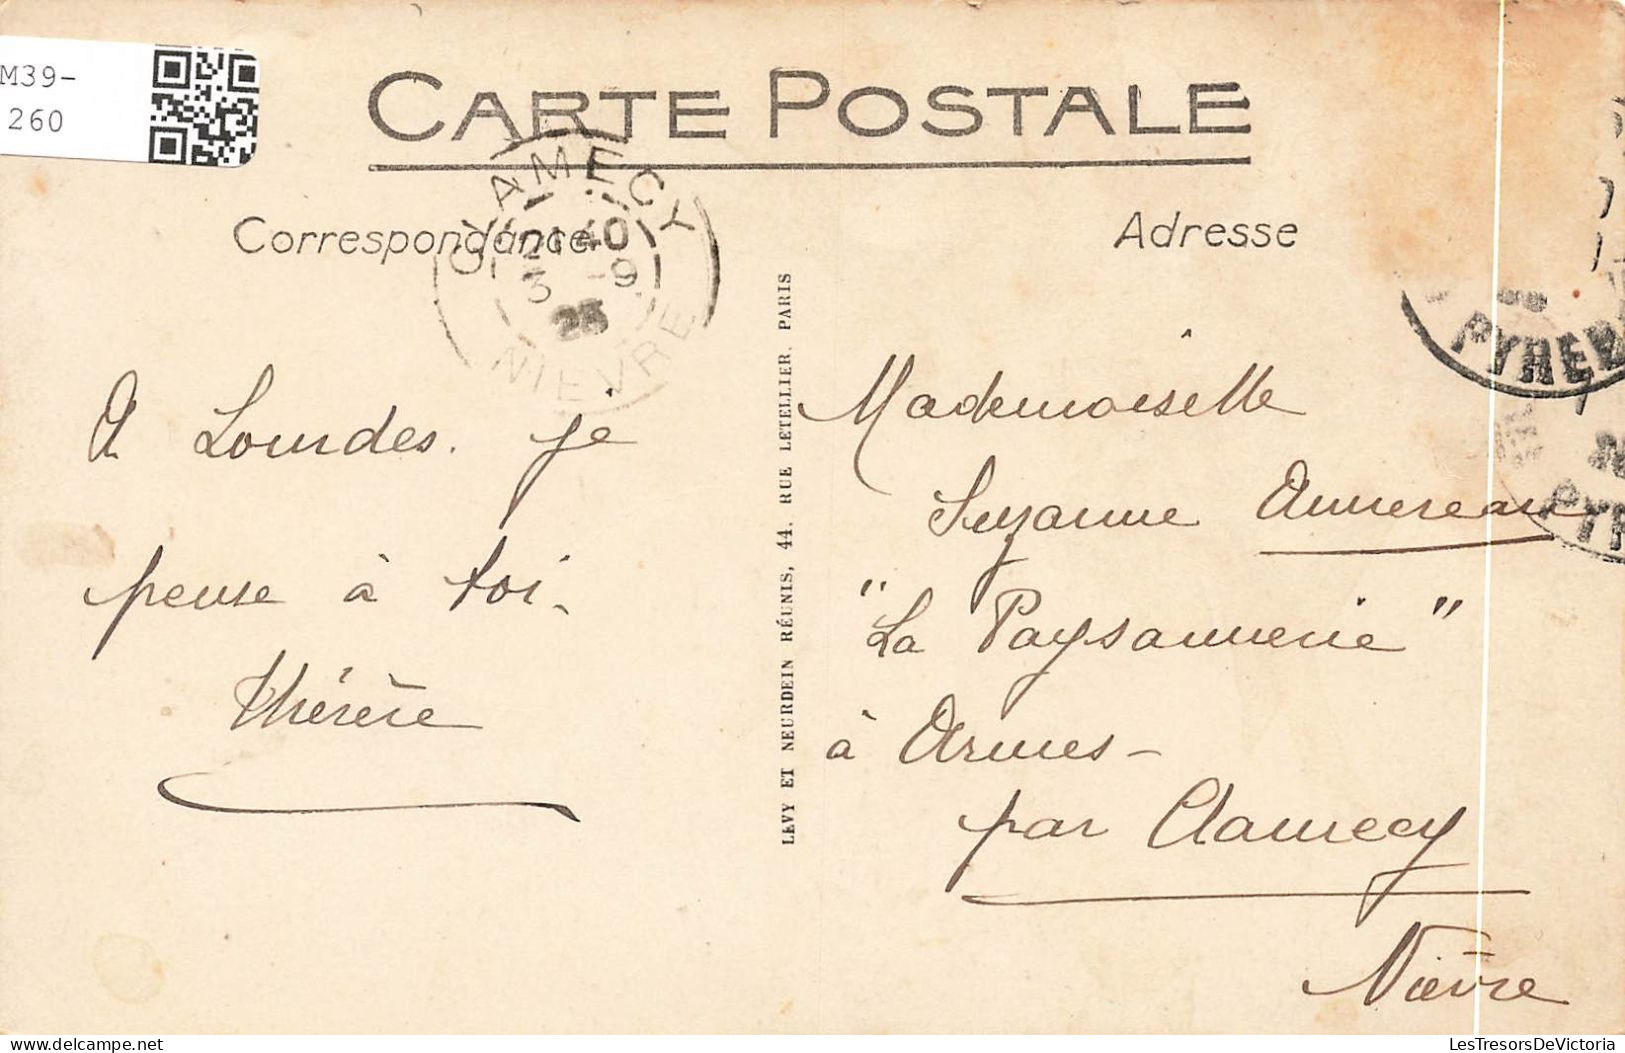 M39-
260
CARTE POSTALE
Correspondance
Adresse
CLAMECY
21 40
3 -9
25
NIEVRE
A Lourdes. je
pense à toi.
Thérèse
LEVY ET NEURDEIN RÉUNIS, 44, RUE LETELLIER, PARIS
Mademoiselle
Suzanne Annereau
"La Paysannerie"
à Armes -
par Clamecy
Nièvre
LesTresorsDeVictoria
delcampe.net